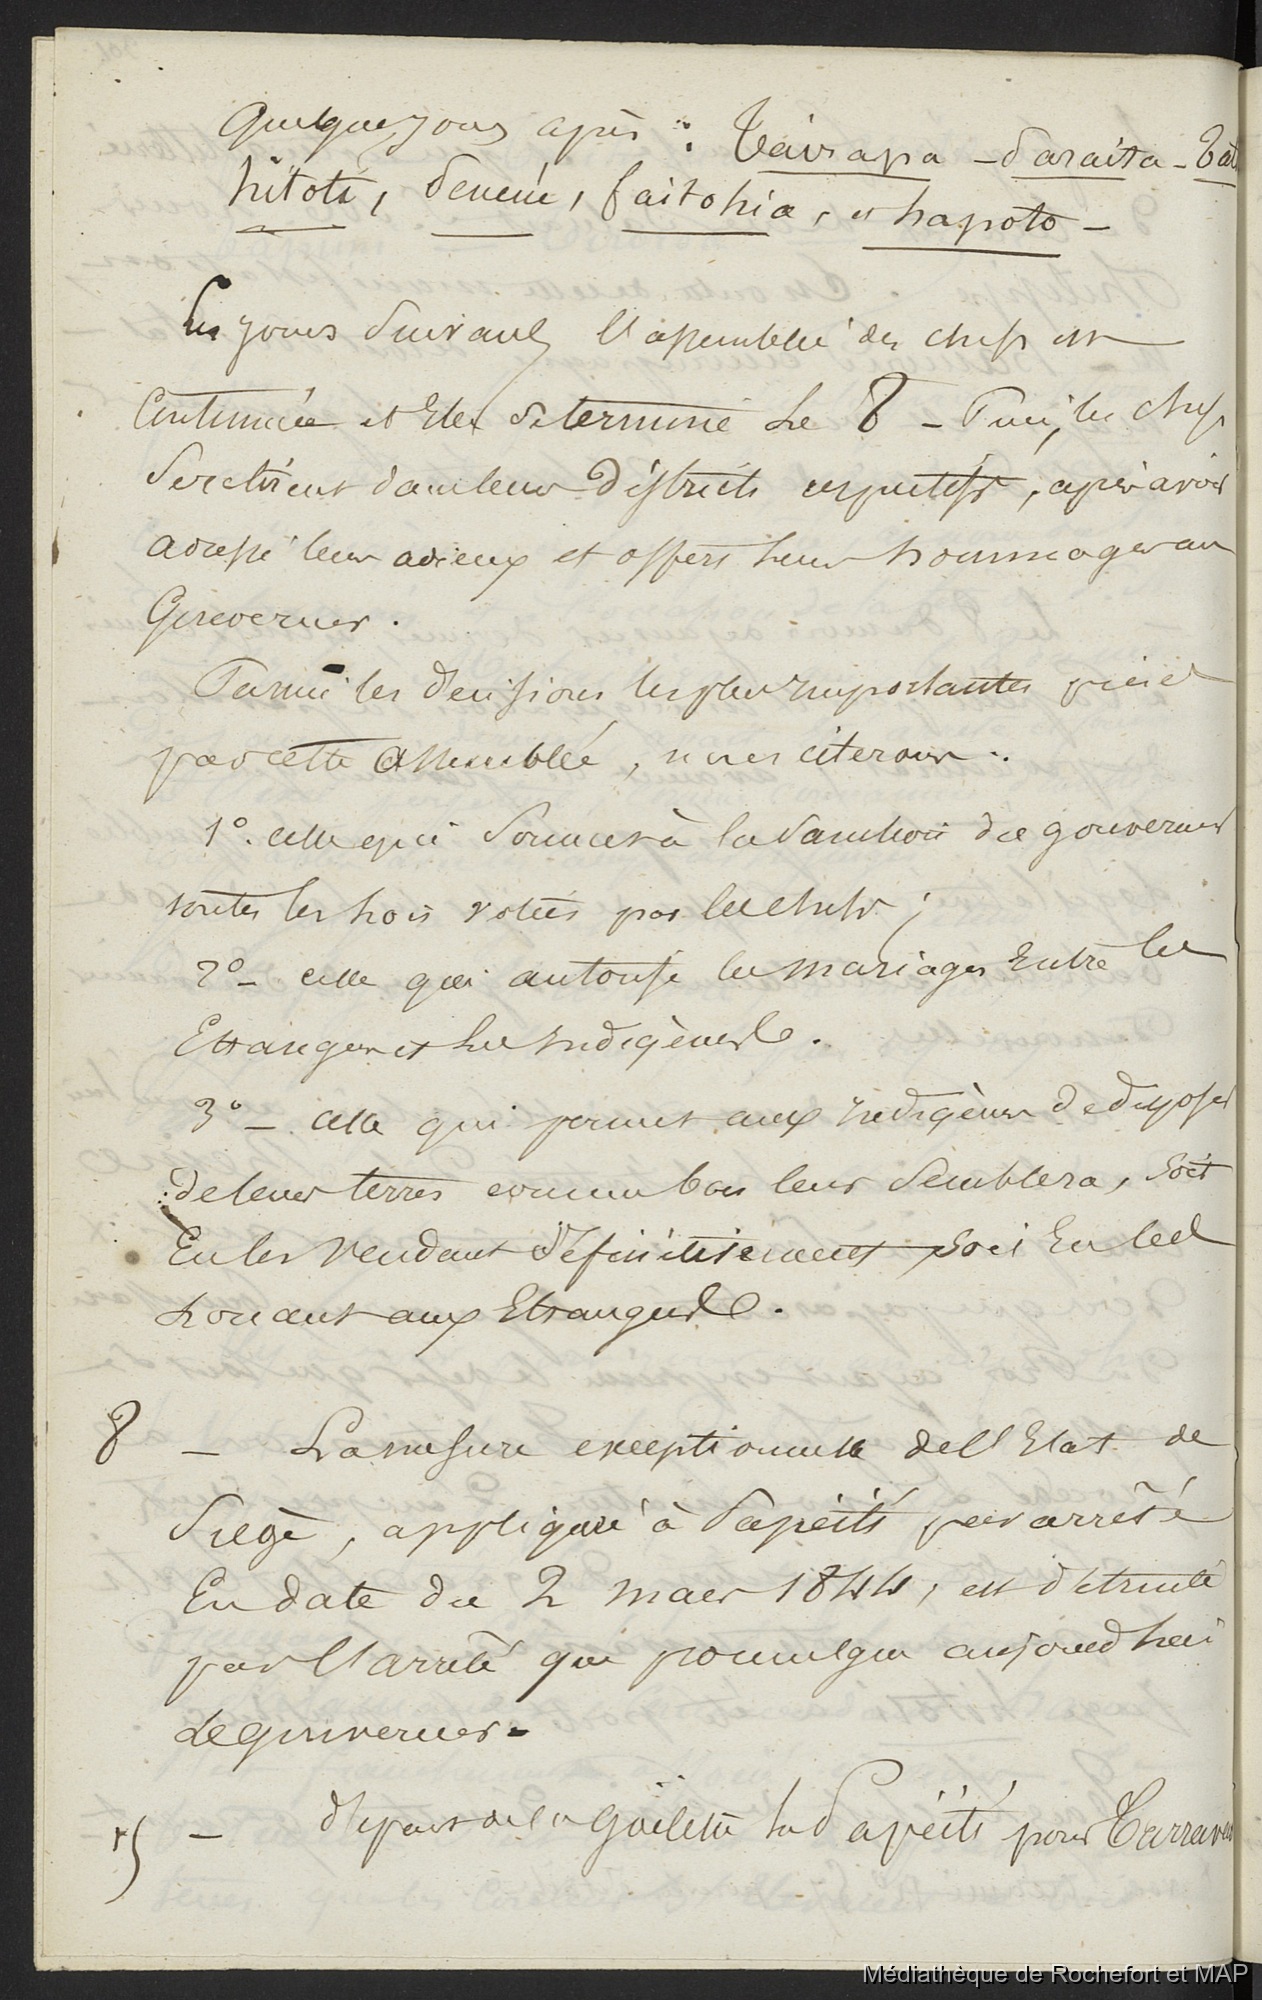 Quelques jours après : Tairapa - Taraita - Tat
hitoti, Teneue, faitohia, et hapoto -
Les jours suivants l'assemblée des chefs est
Continuée et Elle se termine le 8 - Puis, les chefs
se retirent dans leurs Districts respectifs, après avoir
adressé leurs adieux et offert leurs hommages au
Gouverneur.
Parmi les décisions les plus importantes prises
par cette assemblée, nous citerons.
1° - celle qui soumet à la sanction du gouverneur
toutes les lois votées par les chefs ;
2° - celle qui autorise les mariages Entre les
Etrangers et les indigènes.
3° - celle qui permet aux indigènes de disposer
de leurs terres comme bon leur semblera, soit
En les vendant définitivement soit En les
Louant aux Etrangers.
8 - La mesure exceptionnelle de l'Etat de
Siège, appliquée à Papéiti par arrêté
En date du 2 mars 1844, est détruite
par l'arrêté que promulgue aujourd'hui
le gouverneur -
15 - départ de la Goëlette la Papéiti pour
Médiathèque de Rochefort et MAP